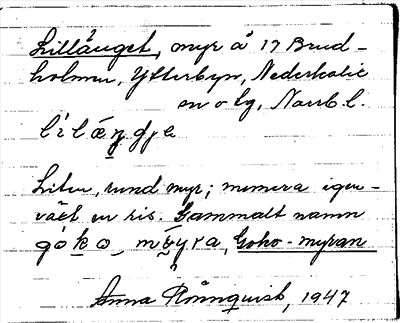 Lillänget, myr å 17 Brud-
holmen, Ytterbyn, Nederkalix
sn o tg, Norrb. l.
Liten, rund myr; numera igen-
växt en ris. Gammalt namn
Goho-myran
Anna Rönnquist, 1947